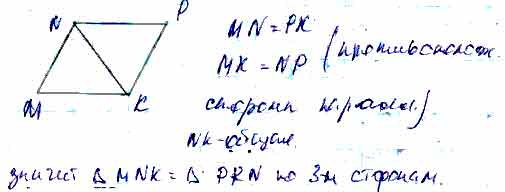 N
P
M
K
MN = PK
MK = NP (противополож.
стороны парал.)
NK - общая
значит Δ MNK = Δ PKN по 3-м сторонам.